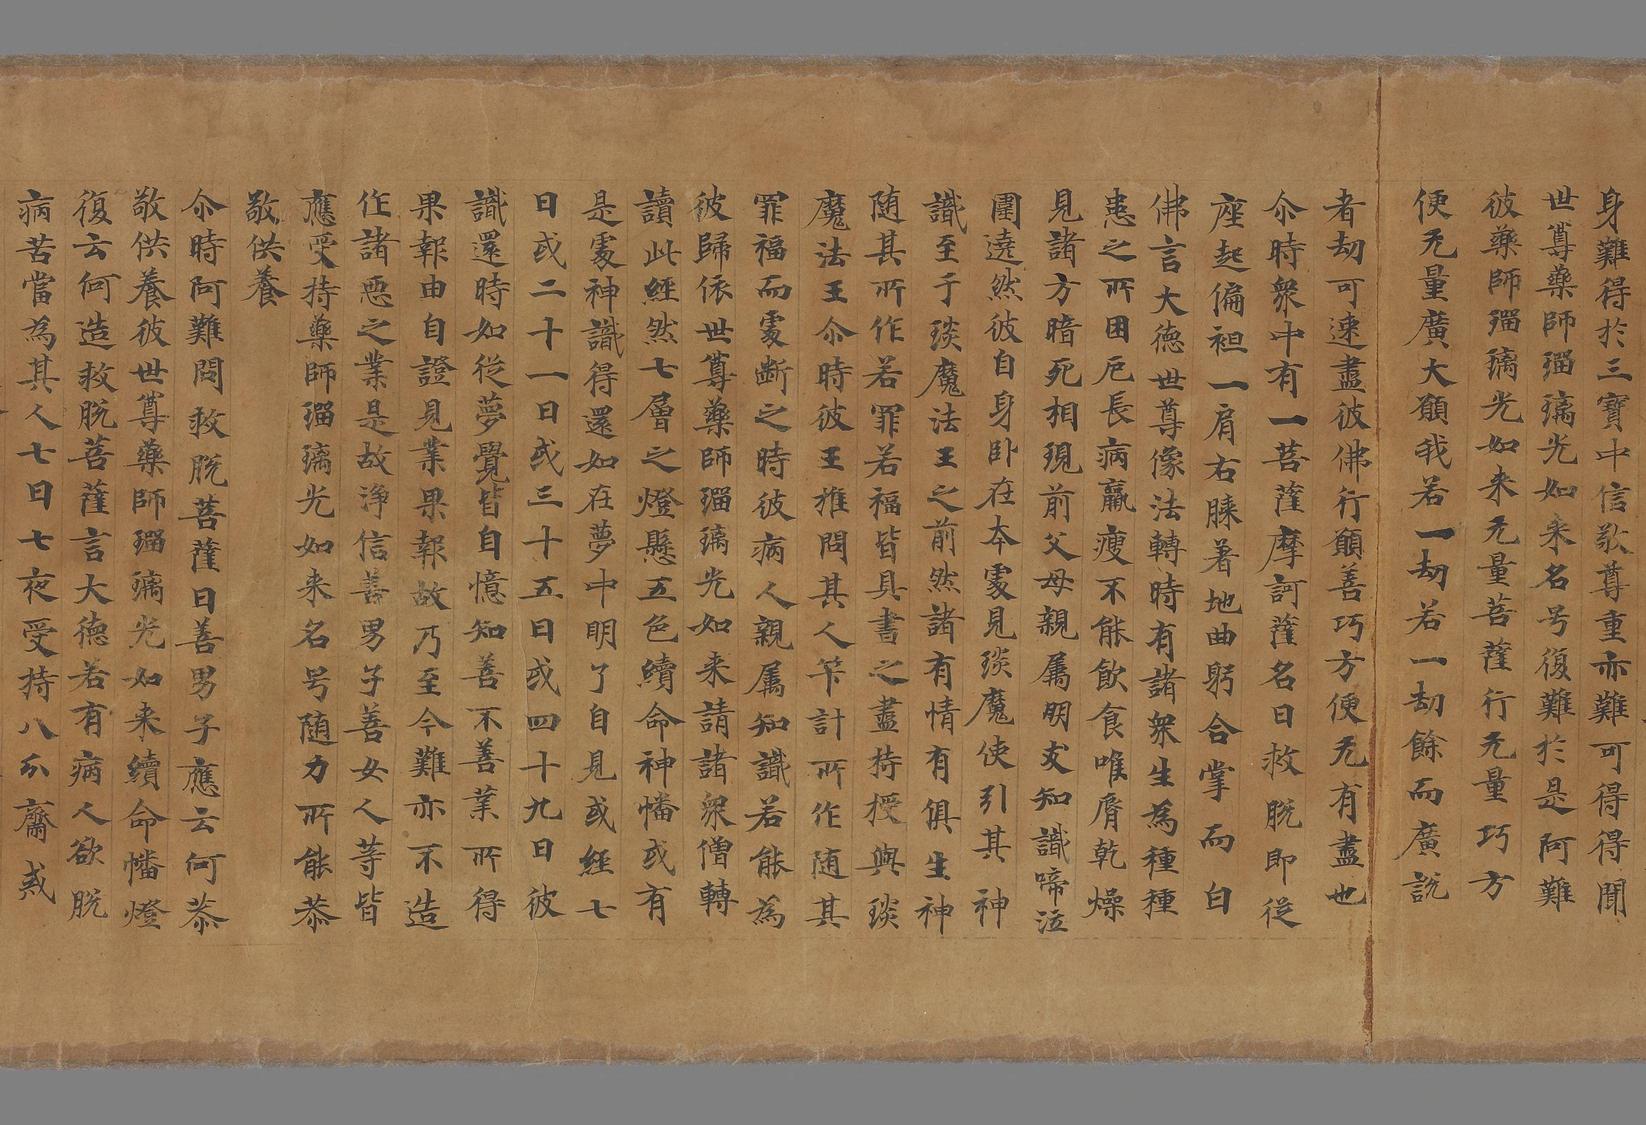 身難得於三寶中信敬尊重亦難可得得聞
世尊藥師瑠璃光如来名号復難於是阿難
彼藥師瑠璃光如来无量菩薩行无量巧方
便无量廣大願我若一劫若一劫餘而廣說
者劫可速盡彼佛行願善巧方便无有盡也
尒時衆中有一菩薩摩訶薩名曰救脱即従
座起偏袒一肩右膝著地曲躬合掌而白
佛言大德世尊像法轉時有諸衆生為種種
患之所困厄長病羸瘦不能飲食唯脣乾燥
見諸方暗死相現前父母親属朋友知識啼泣
圍遶然彼自身卧在本䖏見琰魔使引其神
識至于琰魔法王之前然諸有情有俱生神
随其所作若罪若福皆具書之盡持授與琰
魔法王尒時彼王推問其人筭計所作随其
罪福而䖏断之時彼病人親属知識若能為
彼歸依世尊藥師瑠璃光如来請諸衆僧轉
讀此經然七層之燈懸五色續命神幡或有
是䖏神識得還如在夢中明了自見或經七
日或二十一日或三十五日或四十九日彼
識還時如従夢覺皆自憶知善不善業所得
果報由自證見業果報故乃至今難亦不造
作諸悪之業是故浄信善男子善女人等皆
應受持藥師瑠璃光如来名号随力所能恭
敬供養
尒時阿難問救脱菩薩曰善男子應云何恭
敬供養彼世尊藥師瑠璃光如来續命幡燈
復云何造救脱菩薩言大德若有病人欲脱
病苦當為其人七日七夜受持八分齋戒